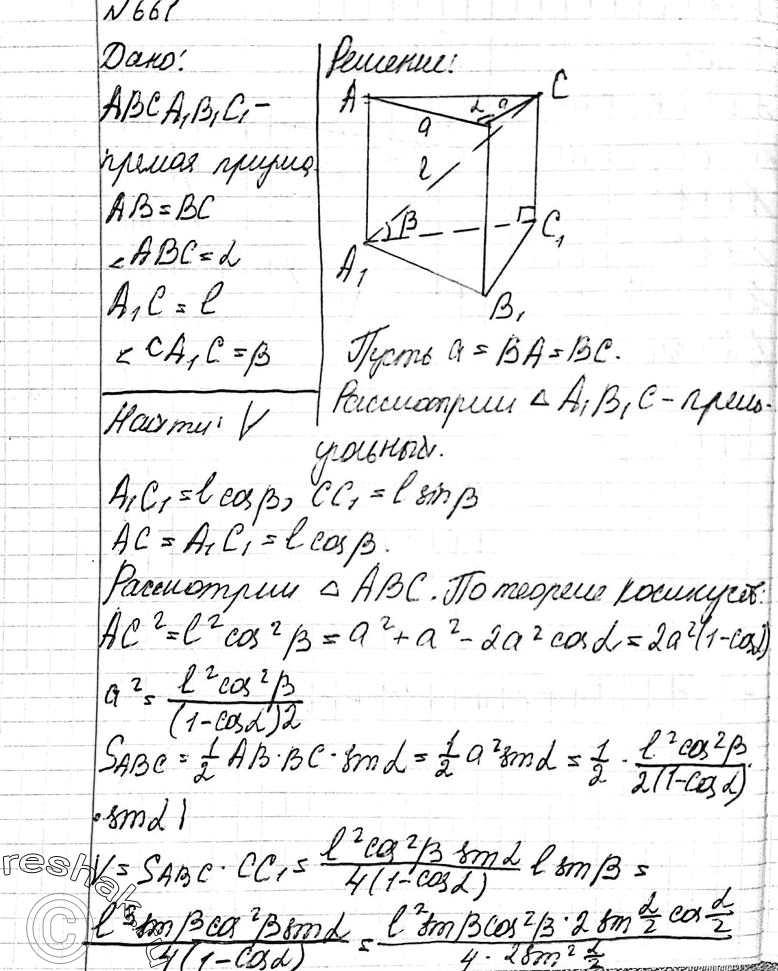 N 661
Дано: Решение:
ABCA₁B₁C₁ –
прямая призма
AB = BC
∠ABC = α
A₁C = l
∠CA₁C = β
Найти: V
A C
α a
a
l
β
A₁ C₁
B₁
Пусть a = BA = BC.
Рассмотрим △ A₁B₁C – прямо-
угольный.
A₁C₁ = l cos β, CC₁ = l sin β
AC = A₁C₁ = l cos β.
Рассмотрим △ ABC. По теореме косинусов:
AC² = l² cos² β = a² + a² − 2a² cos α = 2a²(1 − cos α)
a² = l² cos² β / (1 − cos α)2
S_ABC = 1/2 AB · BC · sin α = 1/2 a² sin α = 1/2 · l² cos² β / 2(1 − cos α) ·
· sin α |
V = S_ABC · CC₁ = l² cos² β sin α / 4(1 − cos α) l sin β =
l³ sin β cos² β sin α / 4(1 − cos α) = l² sin β cos² β · 2 sin α/2 cos α/2 / 4 · 2 sin² α/2
reshak
©